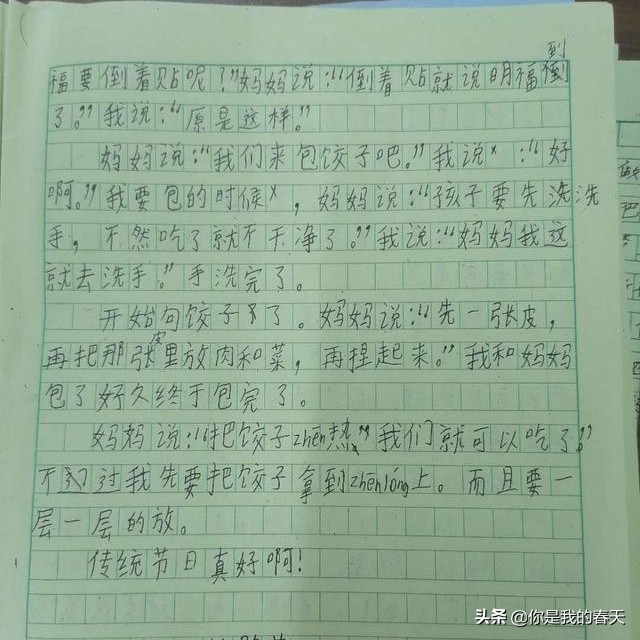 到
福要倒着贴呢？”妈妈说：“倒着贴就说明福倒
了。”我说：“原是这样。”
妈妈说：“我们来包饺子吧。”我说：“好
啊。”我要包的时候，妈妈说：“孩子要先洗洗
手，不然吃了就不干净了。”我说：“妈妈我这
就去洗手。”手洗完了。
开始包饺子了。妈妈说：“先一张皮，
皮
再把那张里放肉和菜，再捏起来。”我和妈妈
包了好久终于包完了。
妈妈说：“把饺子zhēn热，我们就可以吃了。”
不过我先要把饺子拿到zhēnlóng上。而且要一
层一层的放。
传统节日真好啊！
头条 @你是我的春天